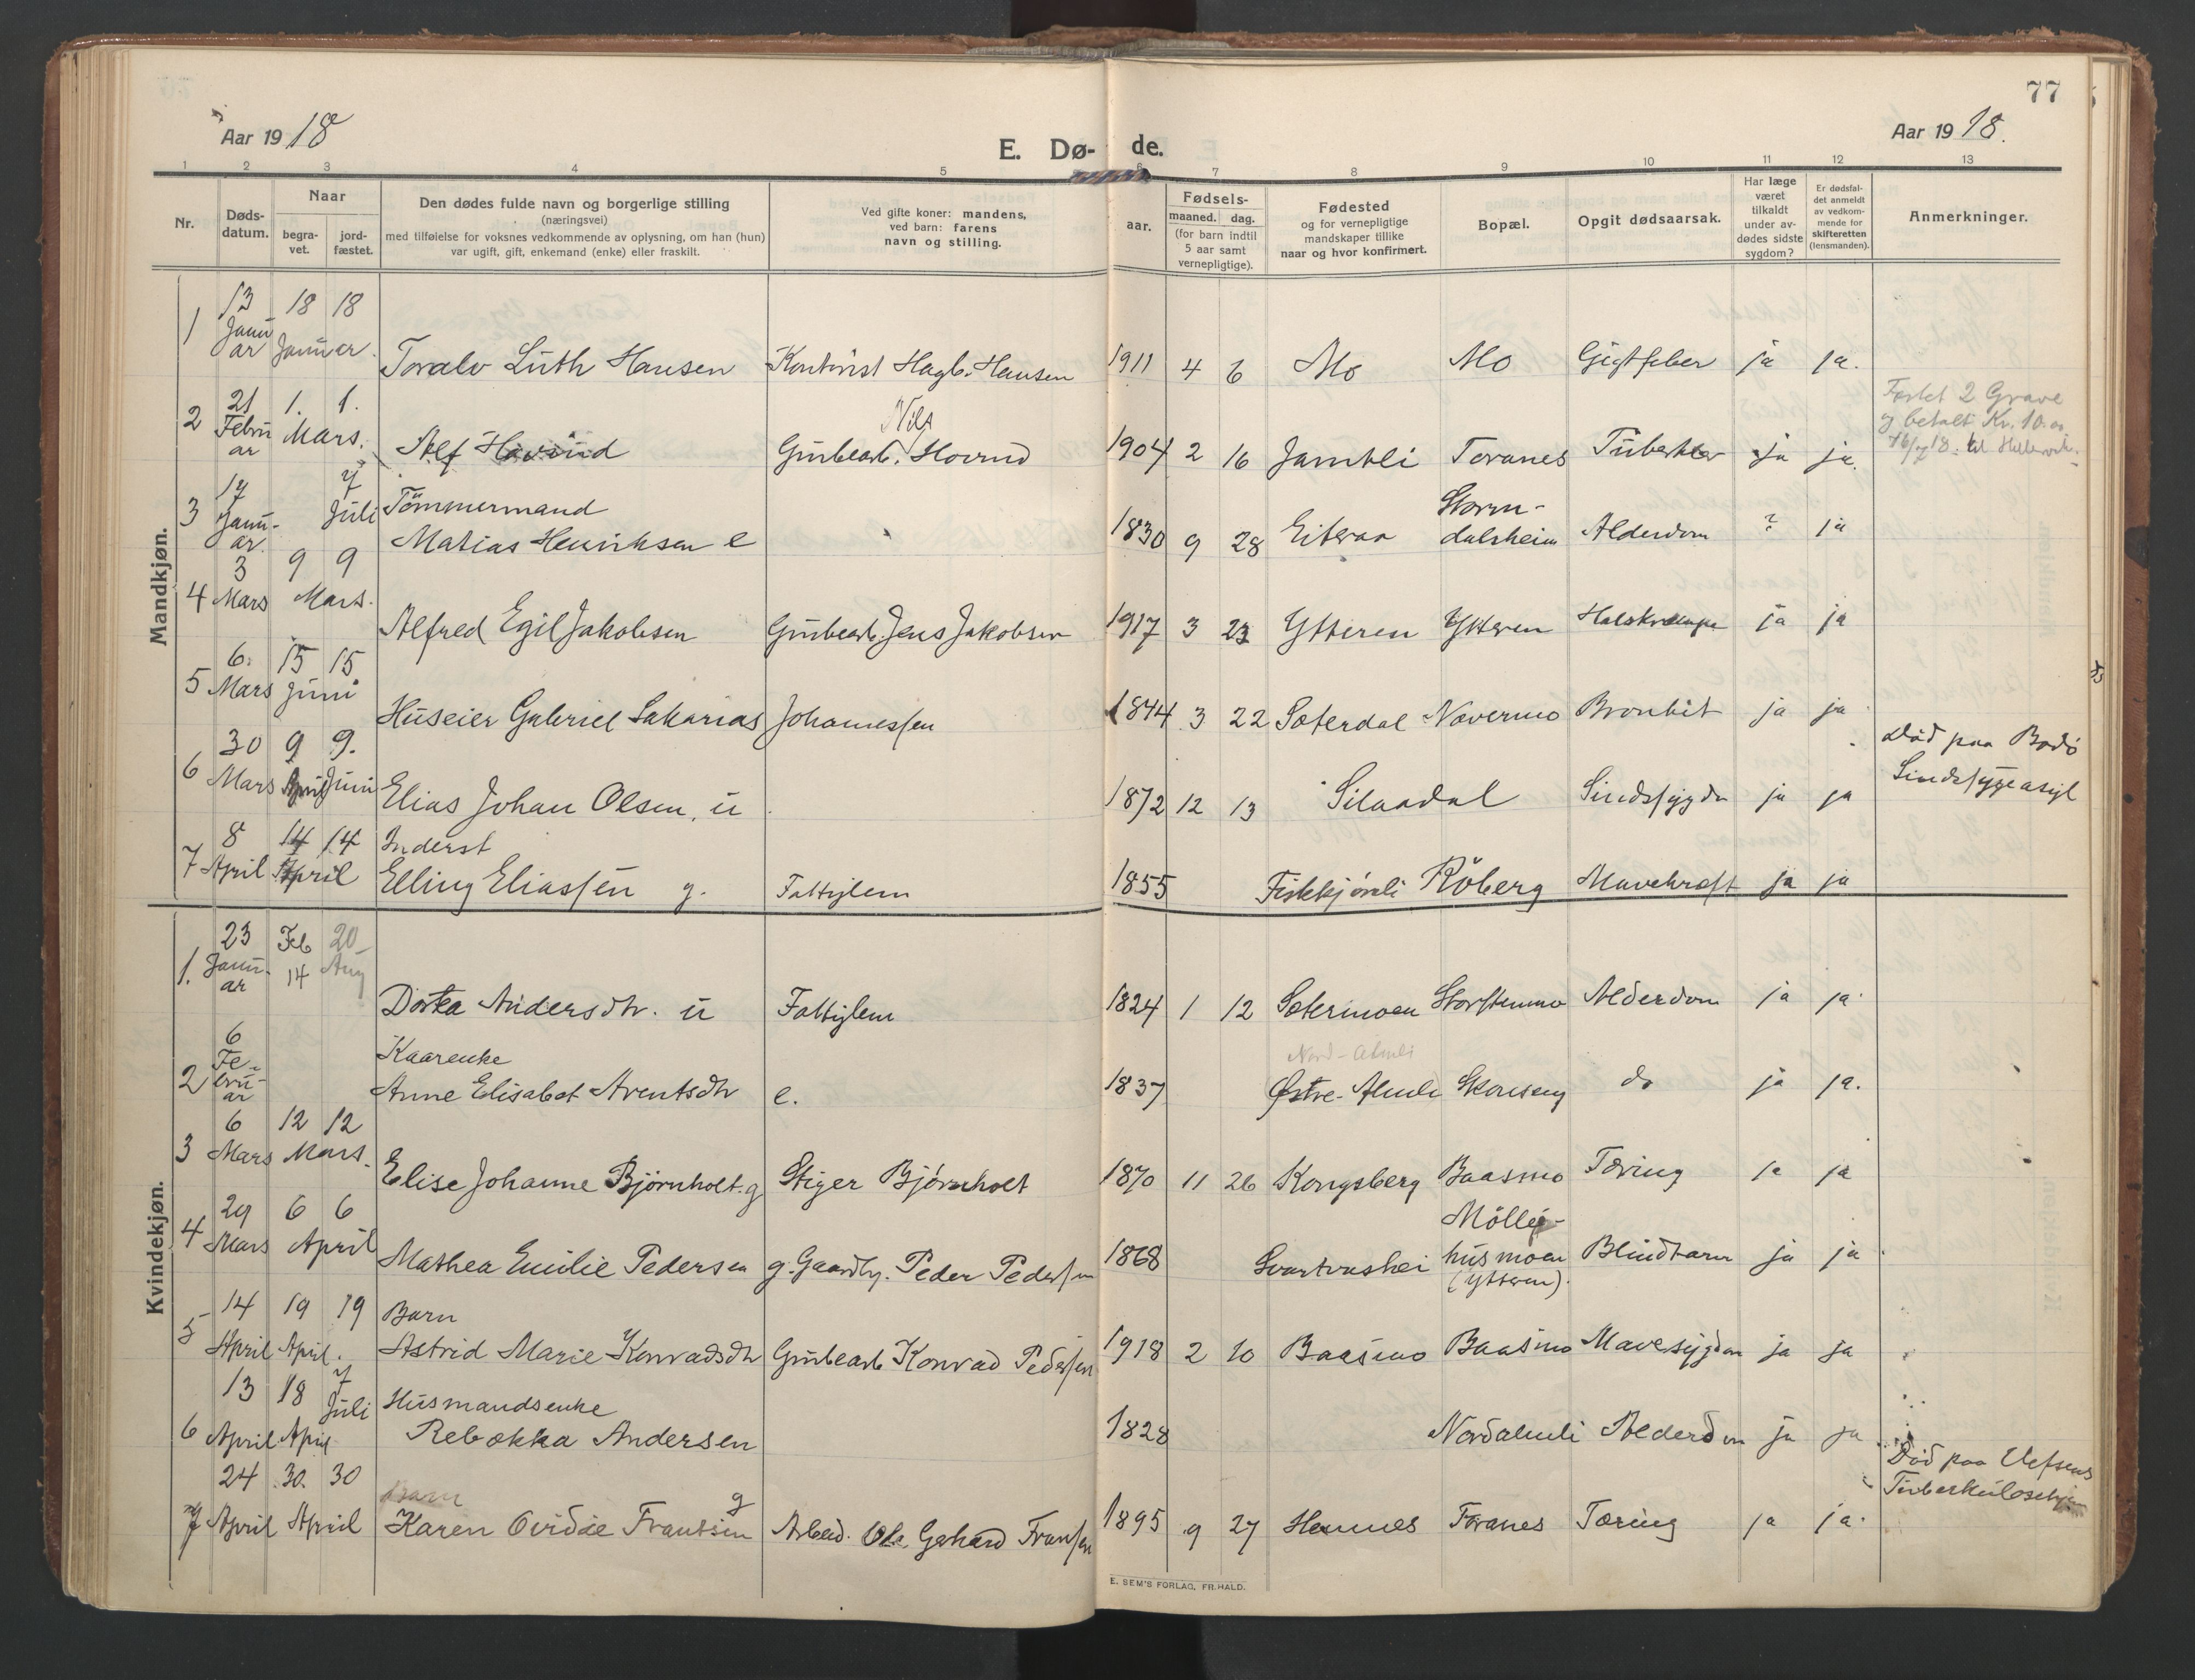 77
Aar 1918
E. Dø-de.
Aar 1918.
1 2 3 4 5 6 7 8 9 10 11 12 13
Nr.
Døds-
datum.
Naar
begra-
vet.
jord-
fæstet.
Den dødes fulde navn og borgerlige stilling
(næringsvei)
med tilføielse for voksnes vedkommende av oplysning, om han (hun)
var ugift, gift, enkemand (enke) eller fraskilt.
Ved gifte koner: mandens,
ved barn: farens
navn og stilling.
aar.
Fødsels-
maaned. dag.
(for barn indtil
5 aar samt
vernepligtige).
Fødested
og for vernepligtige
mandskaper tillike
naar og hvor konfirmert.
Bopæl.
Opgit dødsaarsak.
Har læge
været
tilkaldt
under av-
dødes sidste
sygdom?
Er dødsfal-
det anmeldt
av vedkom-
mende for
skifteretten
(lensmanden).
Anmerkninger.
Mandkjøn.
13 18 18
1 Janu
ar Januar.
Toralv Luth Hansen Kontorist Hagb. Hansen 1911 4 6 Mo Mo Gigtfeber ja ja.
21 1. 1.
2 Febru
ar Mars.
Nils
Alf Havind Grubearb. Hovind 1904 2 16 Jamtli Toranes Tuberkler ja ja.
Festet 2 Grave
og betalt Kr. 10.00
16/7 18.
17 7
3 Janu-
ar. Juli
Tømmermand
Matias Henriksen e 1830 9 28 Eiteraa Storm-
dalsheim Alderdom ? ja
3 9 9
4 Mars Mars.
Alfred Egil Jakobsen Grubearb. Jens Jakobsen 1917 3 23 Ytteren Ytteren Halskrampe ja ja
6. 15 15
5 Mars Juni
Huseier Gabriel Sakarias Johannessen 1844 3 22 Sæterdal Nævermo Bronkit ja ja
30 9 9.
6 Mars April Juni
Elias Johan Olsen, u 1872 12 13 Silaadal Sindssygdm ja ja
Død paa Bodø
Sindssygeasyl
8 14 14
7 April April
Inderst
Elling Eliassen g. Fattiglem 1855 Fiskkjønli Røberg Mavekræft ja ja
Kvindekjøn.
23 Feb 20
1. Janu-
ar 14 Aug
Dortea Andersdtr. u Fattiglem 1824 1 12 Sæterinoen Storstenmo Alderdom ja ja.
6
2 Fe-
bru-
ar
Kaarenke
Anne Elisabet Arentsdtr e. 1837 Østre-Almli Skonseng do ja ja.
6 12 12
3 Mars Mars.
Elise Johanne Bjørnholt. g Stiger Bjørnholt 1870 11 26 Kongsberg Baasmo Tæring ja ja
29 6 6
4 Mars April
Mathea Emilie Pedersen g. Gaardbr. Peder Pedersen 1868 Svartvashei Mølle-
husmoen
(Ytteren). Blindtarm ja ja
14 19 19
5 April April.
Barn
Astrid Marie Konradsdtr Grubearb Konrad Pedersen 1918 2 10 Baasmo Baasmo Mavesygdom ja ja
13 18 7
6 April April Juli
Husmandsenke
Rebekka Andersen 1828 Nordalmli Alderdom ja ja
24 30. 30
7 April April
Barn
Karen Ovidie Frantsen g Arbeid. Ole Gerhard Fransen 1895 9 27 Hemnes Toranes Tæring ja ja.
Død paa Vefsens
Tuberkulosehjem
E. SEM'S FORLAG, FR.HALD.